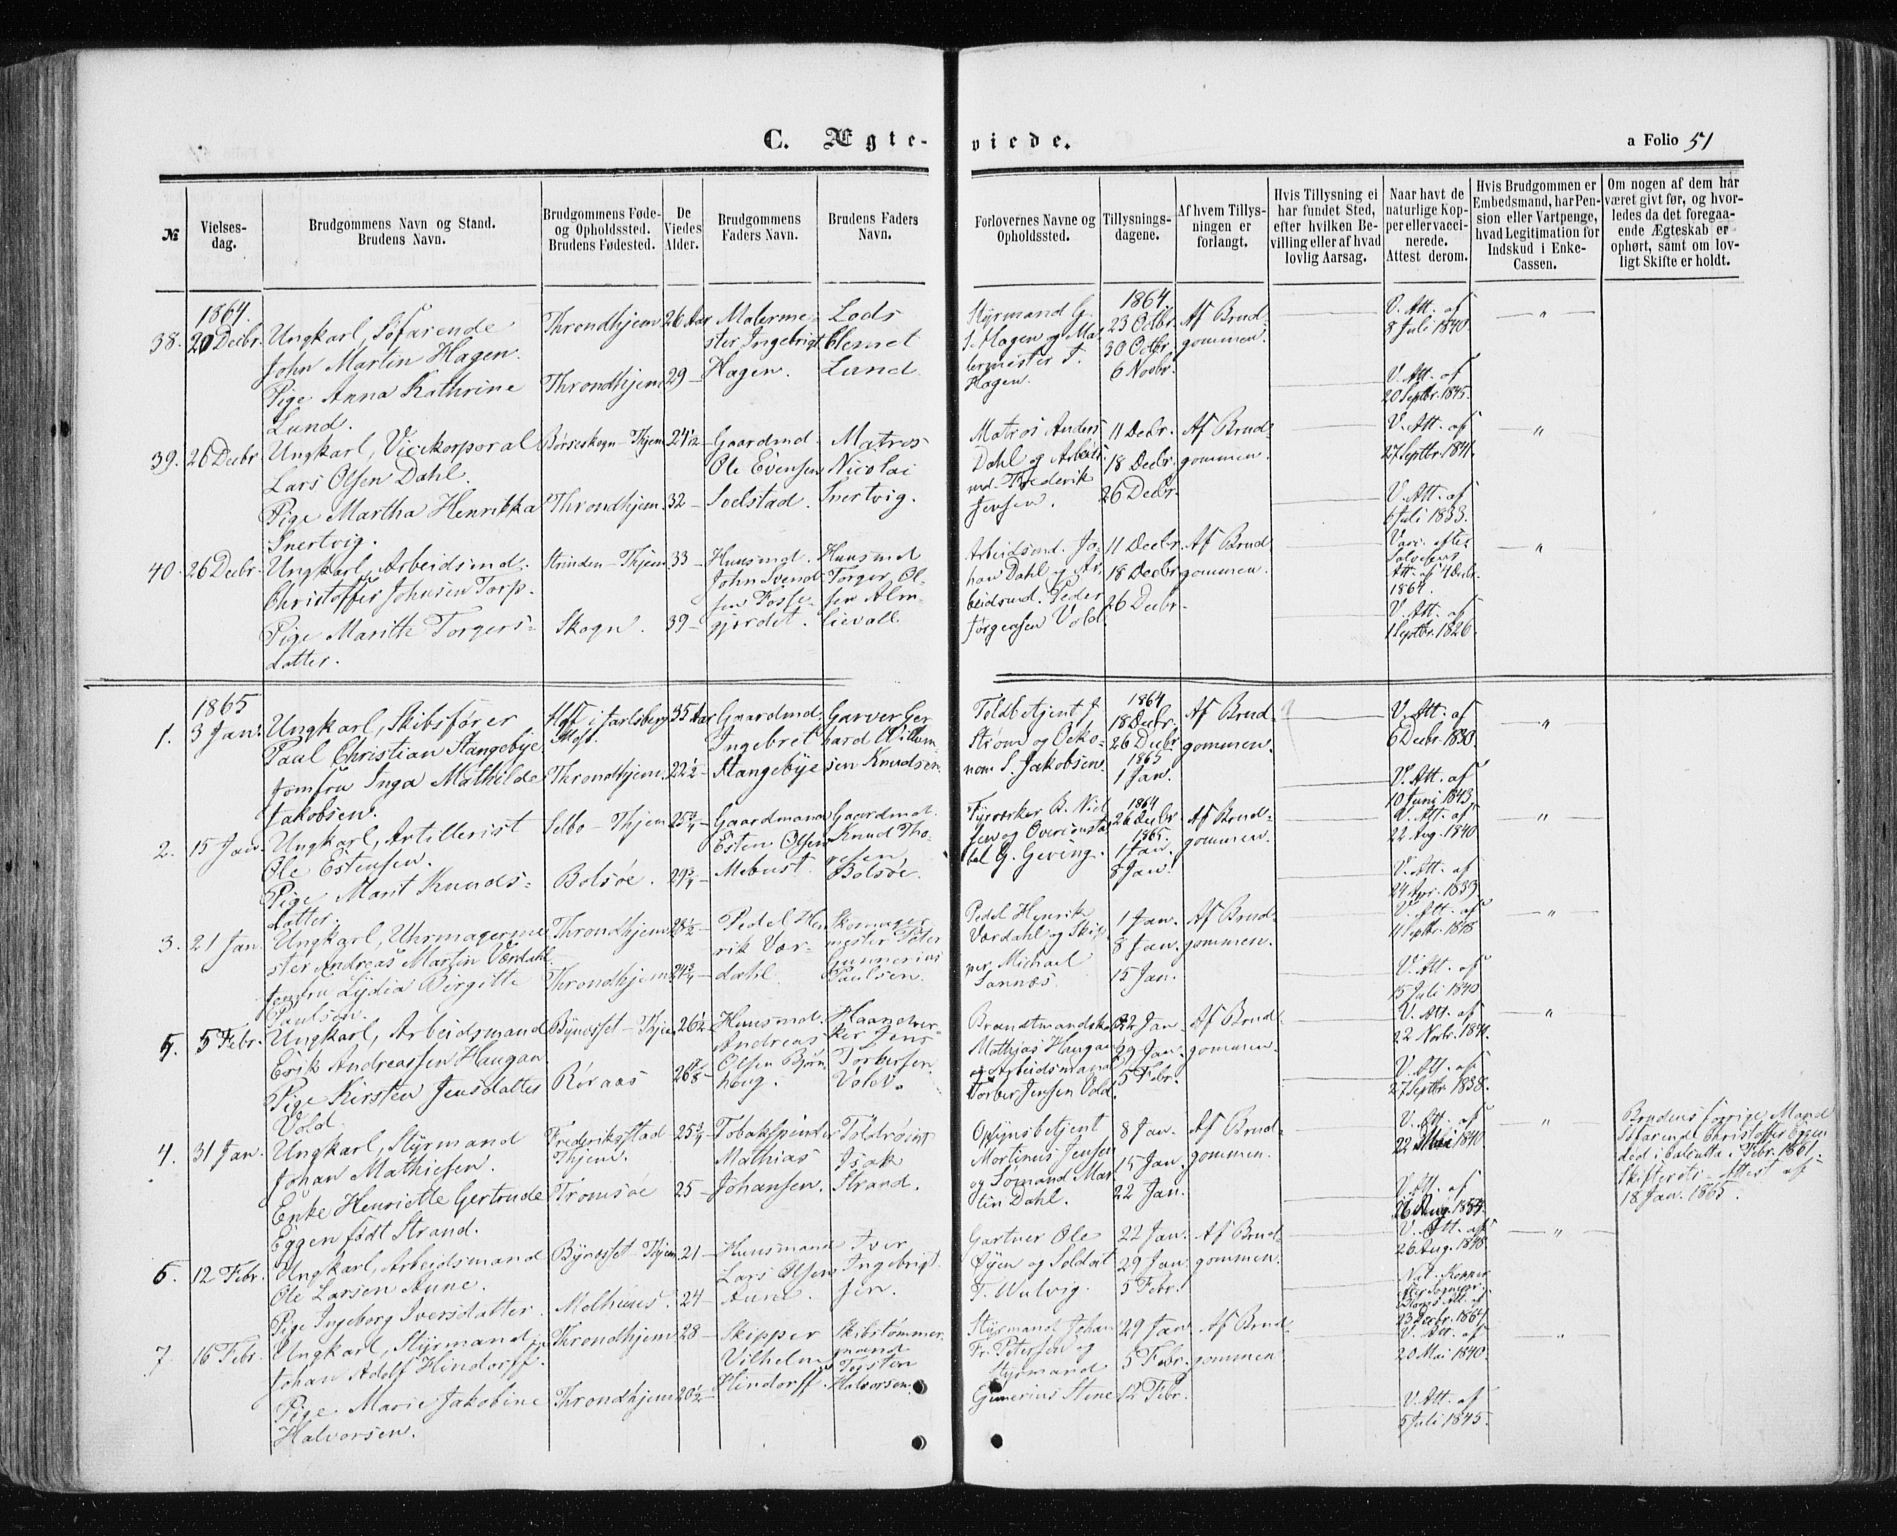 C. Ægte-
viede.
a Folio 51
№
Vielses-
dag.
Brudgommens Navn og Stand.
Brudens Navn.
Brudgommens Føde-
og Opholdssted.
Brudens Fødested.
De
Viedes
Alder.
Brudgommens
Faders Navn.
Brudens Faders
Navn.
Forlovernes Navne og
Opholdssted.
Tillysnings-
dagene.
Af hvem Tillys-
ningen er
forlangt.
Hvis Tillysning ei
har fundet Sted,
efter hvilken Be-
villing eller af hvad
lovlig Aarsag.
Naar havt de
naturlige Kop-
per eller vacci-
nerede.
Attest derom.
Hvis Brudgommen er
Embedsmand, har Pen-
sion eller Vartpenge,
hvad Legitimation for
Indskud i Enke-
Cassen.
Om nogen af dem har
været givt før, og hvor-
ledes da det foregaa-
ende Ægteskab er
ophørt, samt om lov-
ligt Skifte er holdt.
1864.
38. 20 Decbr.
Ungkarl, Søfarende
John Martin Hagen.
Pige Anna Kathrine
Lund.
Throndhjem
Throndhjem
26 Aar
29 –
Malerme-
ster Ingebrigt
Hagen.
Lods
Lund
Styrmand G.
S. Hagen og Ma-
lermester J.
Hagen.
1864.
23 Octbr.
30 Octbr.
6 Novbr.
Af Brud-
gommen.
V. Att. af
8 Juli 1840.
V. Att. af
20 Septbr. 1845.
39. 26 Decbr
Ungkarl, Vicekorporal
Lars Olsen Dahl.
Pige Martha Henrikka
Snertvig.
Børseskogn – Thjem
Throndhjem.
24 1/2 –
32 –
Gaardmd.
Ole Evensen
Soelstad.
Matros
Nicolai
Snertvig.
Matros Anders
Dahl og Arbeids-
md. Frederik
Jensen.
11 Decbr.
18 Decbr.
26 Decbr.
Af Brud-
gommen.
V. Att. af
27 Septbr. 1841.
V. Att. af
6 Juli 1833.
40. 26 Decbr.
Ungkarl, Arbeidsmd.
Christoffer Johnsen Torp.
Pige Marith Torgers-
datter.
Strinden – Thjem
Skogn.
33 –
39 –
Huusmd.
John Svend-
sen Fosse-
gjerdet.
Huusmd
Torger Ol-
sen Alm-
lievall
Arbeidsmd. Jo-
han Dahl og Ar-
beidsmd. Peder
Jørgensen Vold
11 Decbr
18 Decbr
26 Decbr.
Af Brud-
gommen.
Vacc. efter
Att. af 4 Decbr.
1864.
V. Att. af
1 Septbr. 1826.
1865
1. 3 Jan.
Ungkarl, Skibsfører
Paul Christian Stangebye
Jomfru Inga Mathilde
Jakobsen.
Hoff i Jarlsberg
Throndhjem.
35 Aar
22 1/2 –
Gaardmd.
Ingebret
Stangebye
Garver Ger
hard Willum-
sen Knudsen.
Toldbetjent J.
Strøm og Oeko-
nom S. Jakobsen.
1864
18 Decbr.
26 Decbr
1865
1 Jan.
Af Brud-
gommen.
V. Att. af
6 Decbr. 1830.
V. Att. af
10 Juni 1843.
2. 15 Jan.
Ungkarl, Artillerist
Ole Estensen.
Pige Marit Knuds-
datter.
Selbo – Thjem
Bolsøe.
25 3/4 –
29 3/4 –
Gaardmand
Esten Olsen
Mebust.
Gaardmd.
Knud Tho-
resen
Bolsøe.
Fyrverker B. Niel-
sen og Overconsta-
bel G. Geving.
1864
26 Decbr
1865.
1 Jan.
8 Jan.
Af Brud-
gommen.
V. Att. af
22 Aug. 1840
V. Att. af
24 Apr. 1839
3. 21 Jan.
Ungkarl, Uhrmagerme-
ster Andreas Martin Værdahl.
Jomfru Lydia Birgitte
Paulsen.
Throndhjem
Throndhjem
28 1/2 –
24 3/4 –
Pedel Hen
rik Vær-
dahl.
Skomager
mester Peter
Gunnerius
Paulsen.
Pedel Henrik
Værdahl og Skip-
per Michael
Sannæs.
1 Jan.
8 Jan.
15 Jan.
Af Brud-
gommen.
V. Att. af
11 Septbr. 1848
V. Att. af
15 Juli 1840
5. 5 Febr.
Ungkarl, Arbeidsmand
Erik Andreassen Haugan
Pige Kirsten Jensdatter
Vold
Bynesset – Thjem
Røraas
26 1/2 –
Huusmd.
Andreas
Olsen Bjørn
haug.
Haandver-
ker Jens
Torbersen
Vold.
Mathias Haugan
og Arbeidsmand
Torber Jensen Vold.
22 Jan.
29 Jan.
5 Febr.
Af Brud-
gommen.
V. Att. af
22 Novbr. 1841.
V. Att. af
27 Septbr. 1838.
4. 31 Jan.
Ungkarl, Styrmand
Johan Mathiesen.
Enke Henriette Gertrude
Eggen født Strand.
Frederiksstad
Thjem.
Tromsøe
25 3/4 –
25 –
Tobakspinder
Mathias
Johansen.
Isak
Strand.
Opsynsbetjent
Martinus Jensen
og Sømand Mar
tin Dahl.
8 Jan.
15 Jan.
22 Jan.
Af Brud-
gommen.
V. Att. af
22 Mai 1840
V. Att. af
26 Aug. 1854.
Brudens forrige Mand
Søfarende Christoffer Eggen
død i Calcutta i Febr. 1861.
Skifterets-Attest af
18 Jan. 1865.
6. 12 Febr.
Ungkarl, Arbeidsmand
Ole Larsen Aune.
Pige Ingeborg Iversdatter.
Bynesset – Thjem
Melhuus.
21 –
24 –
Huusmand
Lars Olsen
Aune.
Iver
Ingebrigt-
sen.
Gartner Ole
Øyen og Soldat
T. Wulvig.
22 Jan.
29 Jan.
5 Febr.
Af Brud-
gommen.
V. Att. af
26 Aug. 1848
Nat. Kopper
23 Decbr. 1864.
7. 16 Febr.
Ungkarl, Styrmand
Johan Adolf Hindorff.
Pige Marie Jakobine
Halvorsen.
Throndhjem
Throndhjem
28 –
20 1/2 –
Skipper
Vilhelm
Hindorff.
Skibstømmer
mand
Torsten
Halvorsen.
Styrmand Johan
Fr. Petersen og
Styrmand
Gunerius Stene
29 Jan.
5 Febr.
12 Febr.
Af Brud-
gommen
V. Att. af
20 Mai 1840.
V. Att. af
5 Juli 1845.